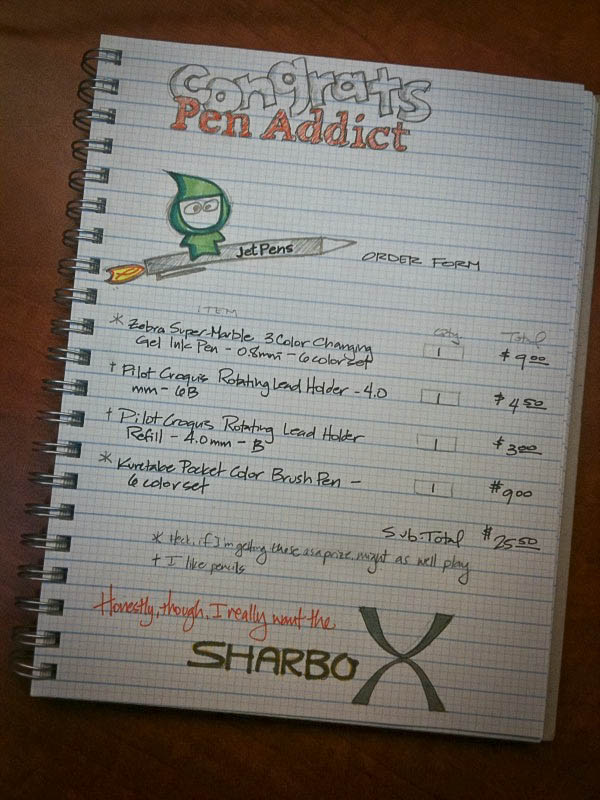 Congrats
Pen Addict
jetPens
ORDER FORM
ITEM Qty Total
* Zebra Super-Marble 3 Color Changing
Gel Ink Pen - 0.8mm - 6 color set 1 $9.00
† Pilot Croquis Rotating Lead Holder - 4.0
mm - 6B 1 $4.50
† Pilot Croquis Rotating Lead Holder
Refill - 4.0mm - B 1 $3.00
* Kuretake Pocket Color Brush Pen -
6 color set 1 $9.00
Sub-Total $25.50
* Heck, if I'm getting these as a prize, might as well play
† I like pencils
Honestly, though, I really want the
SHARBO X